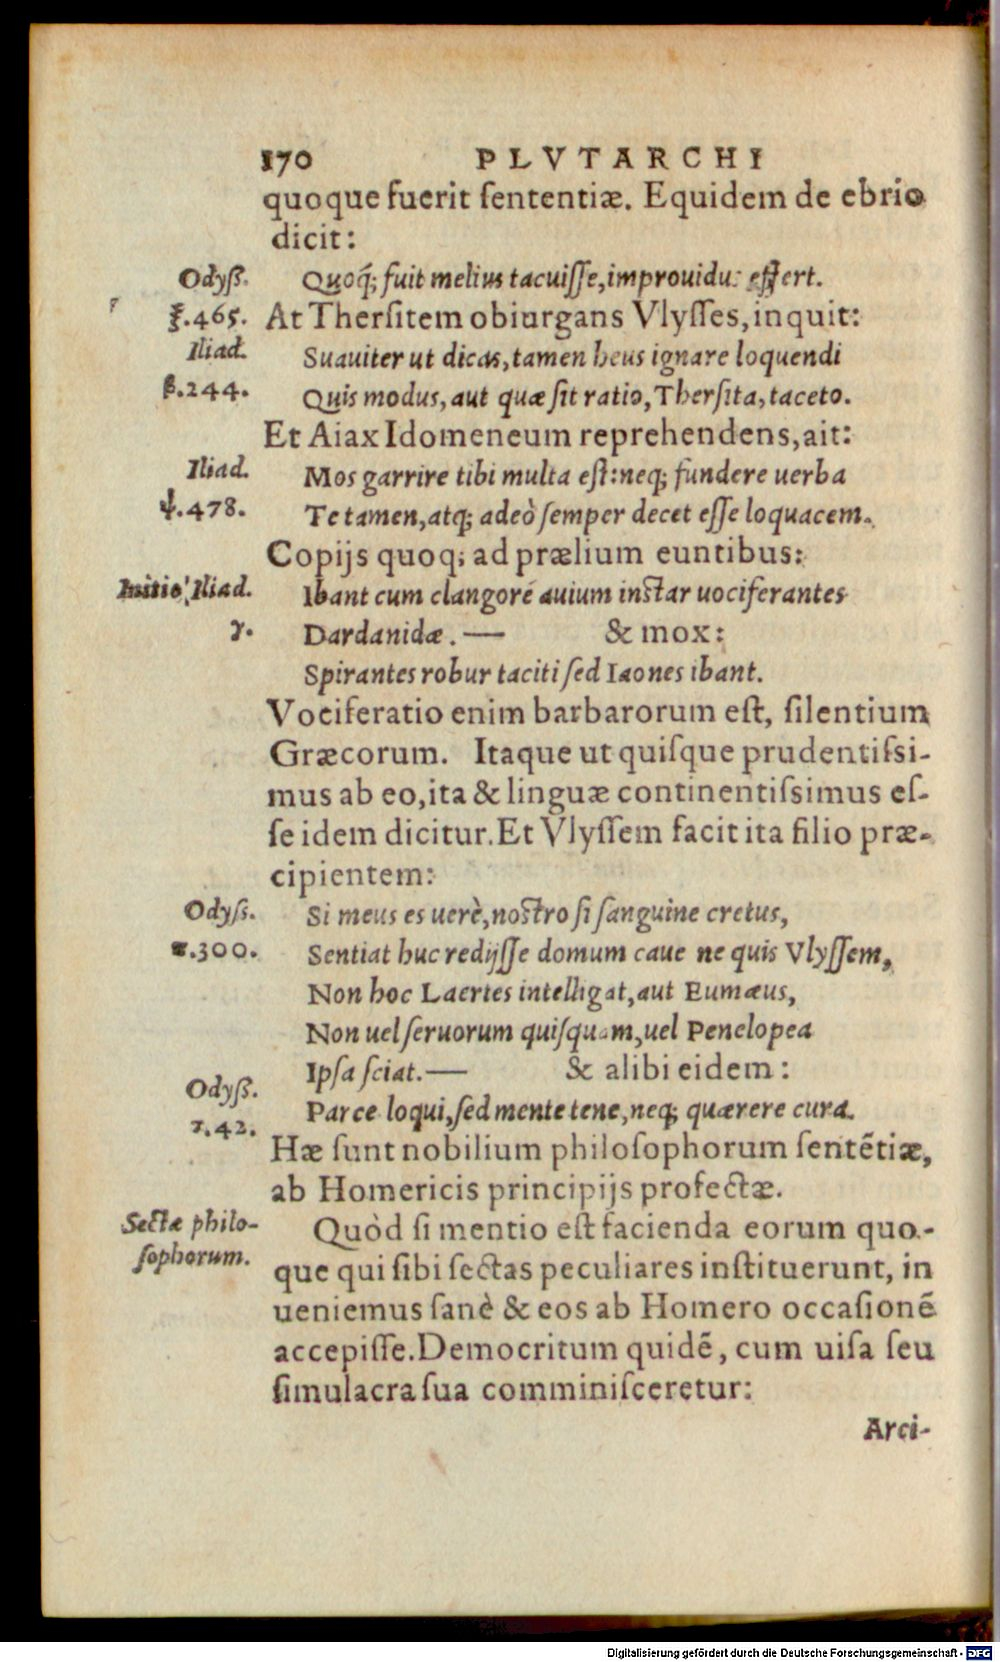 170 PLVTARCHI
quoque fuerit sententiæ. Equidem de ebrio
dicit:
Odyß. Quoq́; fuit melius tacuisse, improuidus effert.
ξ.465. At Thersitem obiurgans Vlysses, inquit:
Iliad. Suauiter ut dicas, tamen heus ignare loquendi
β.244. Quis modus, aut quæ sit ratio, Thersita, taceto.
Et Aiax Idomeneum reprehendens, ait:
Iliad. Mos garrire tibi multa est: neq; fundere uerba
ψ.478. Te tamen, atq; adeò semper decet esse loquacem.
Copijs quoq; ad prælium euntibus:
Initio Iliad. Ibant cum clangore auium instar uociferantes
γ. Dardanidæ. — & mox:
Spirantes robur taciti sed Iaones ibant.
Vociferatio enim barbarorum est, silentium
Græcorum. Itaque ut quisque prudentissi-
mus ab eo, ita & linguæ continentissimus es-
se idem dicitur. Et Vlyssem facit ita filio præ-
cipientem:
Odyss. Si meus es uerè, nostro si sanguine cretus,
π.300. Sentiat huc redijsse domum caue ne quis Vlyssem,
Non hoc Laertes intelligat, aut Eumæus,
Non uel seruorum quisquam, uel Penelopea
Ipsa sciat. — & alibi eidem:
Odyß.
τ.42. Parce loqui, sed mente tene, neq; quærere cura.
Hæ sunt nobilium philosophorum sentẽtiæ,
ab Homericis principijs profectæ.
Sectæ philo- Quòd si mentio est facienda eorum quo-
sophorum. que qui sibi sectas peculiares instituerunt, in
ueniemus sanè & eos ab Homero occasionẽ
accepisse. Democritum quidẽ, cum uisa seu
simulacra sua comminisceretur:
Arci-
Digitalisierung gefördert durch die Deutsche Forschungsgemeinschaft - DFG